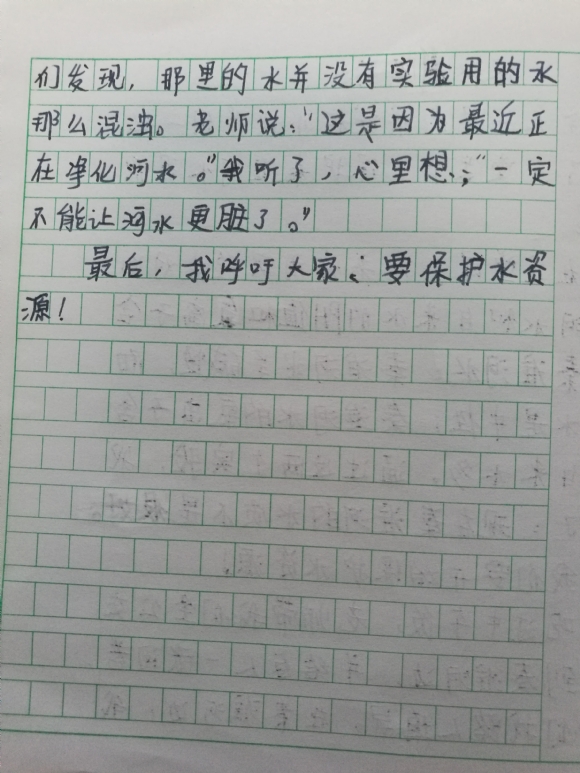 们发现，那里的水并没有实验用的水
那么混浊。老师说：“这是因为最近正
在净化河水。”我听了，心里想：“一定
不能让河水更脏了。”
最后，我呼吁大家：要保护水资
源！